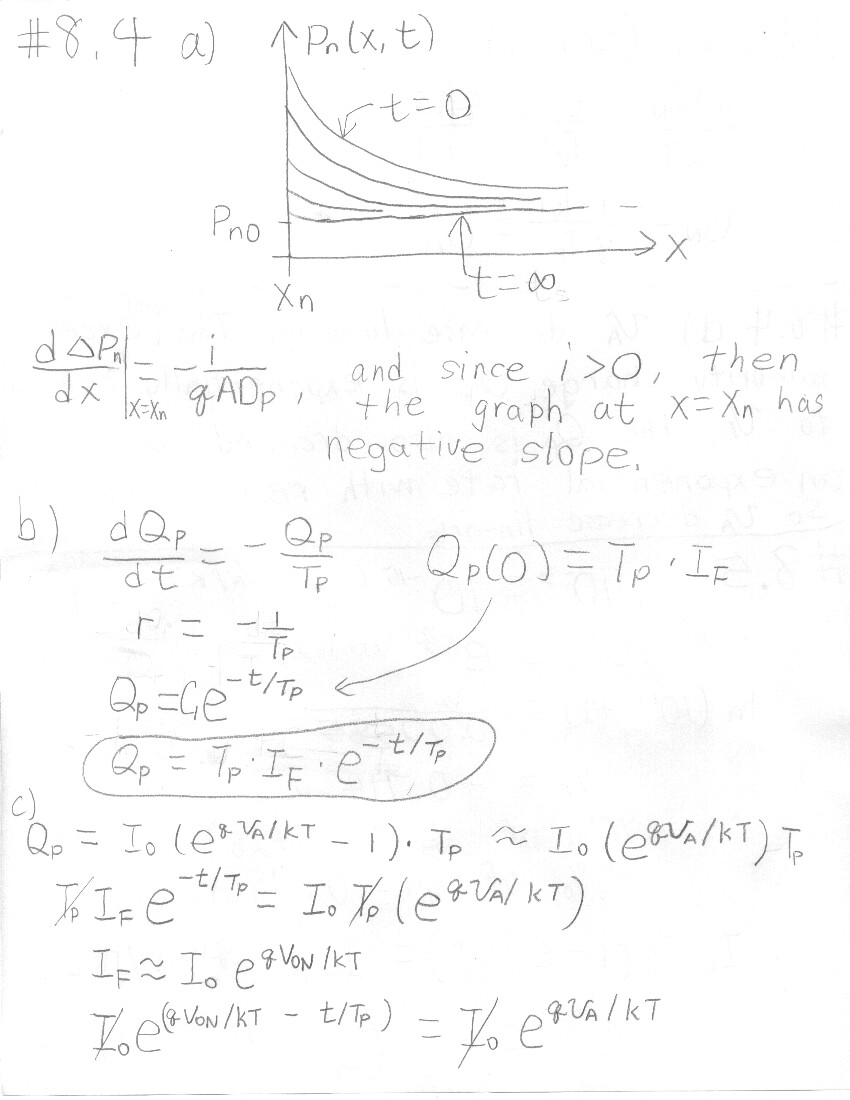 #8.4 a)
Pn(x,t)
t=0
Pno
X
Xn
t=∞
d ΔPn/dx |x=xn = - i/qADp, and since i>0, then
the graph at x=xn has
negative slope.
b) dQp/dt = - Qp/Tp   Qp(0) = Tp · IF
r = - 1/Tp
Qp = C₁e^(-t/Tp)
Qp = Tp · IF · e^(-t/Tp)
c)
Qp = Io (e^(qVA/kT) - 1) · Tp ≈ Io (e^(qVA/kT)) Tp
Tp IF e^(-t/Tp) = Io Tp (e^(qVA/kT))
IF ≈ Io e^(qVON/kT)
Io e^(qVON/kT - t/Tp) = Io e^(qVA/kT)